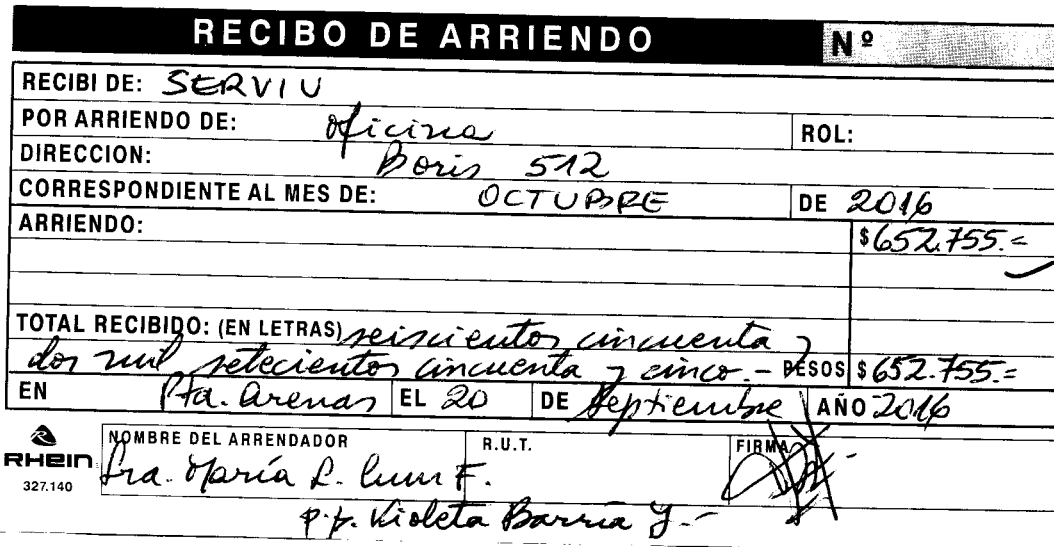 RECIBO DE ARRIENDO Nº
RECIBI DE: SERVIU
POR ARRIENDO DE: Oficina ROL:
DIRECCION: Boris 512
CORRESPONDIENTE AL MES DE: OCTUBRE DE 2016
ARRIENDO: $652.755.=
TOTAL RECIBIDO: (EN LETRAS) seiscientos cincuenta y
dos mil setecientos cincuenta y cinco.- PESOS $652.755.=
EN Pta. Arenas EL 20 DE Septiembre AÑO 2016
RHEIN
327.140
NOMBRE DEL ARRENDADOR R.U.T. FIRMA
Sra. María L. F.
p.p. Violeta Barría Y.-